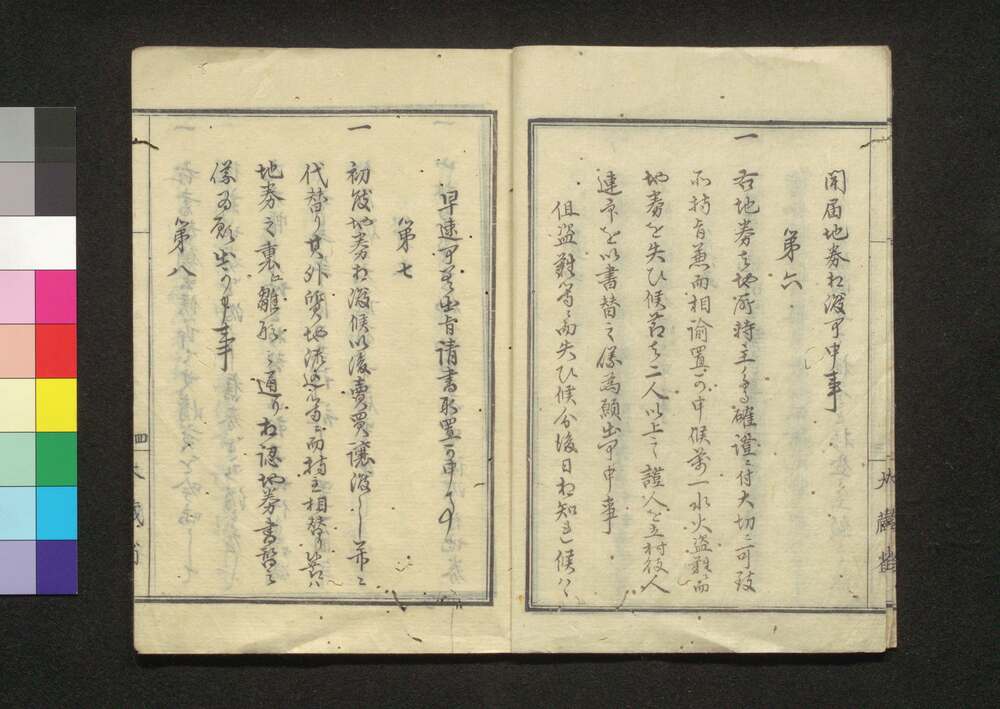 聞届地券相渡可申事
第六
一
右地券ハ地所持主タル確證ニ付大切ニ可致
所持旨兼而相諭置可申候萬一水火盗難ニ而
地券を失ひ候節ハ二人以上之證人を立村役人
連印を以書替之儀為願出可申事
但盗難等ニ而失ひ候分後日相知れ候ハヽ
早速可差出旨請書取置可申事
第七
一
初發地券相渡候以後賣買讓渡し并ニ
代替り其外質地流込等ニ而持主相替り候節ハ
地券之裏江雛形之通り相認地券書替之
儀為願出可申事
第八
大藏省
四
大藏省